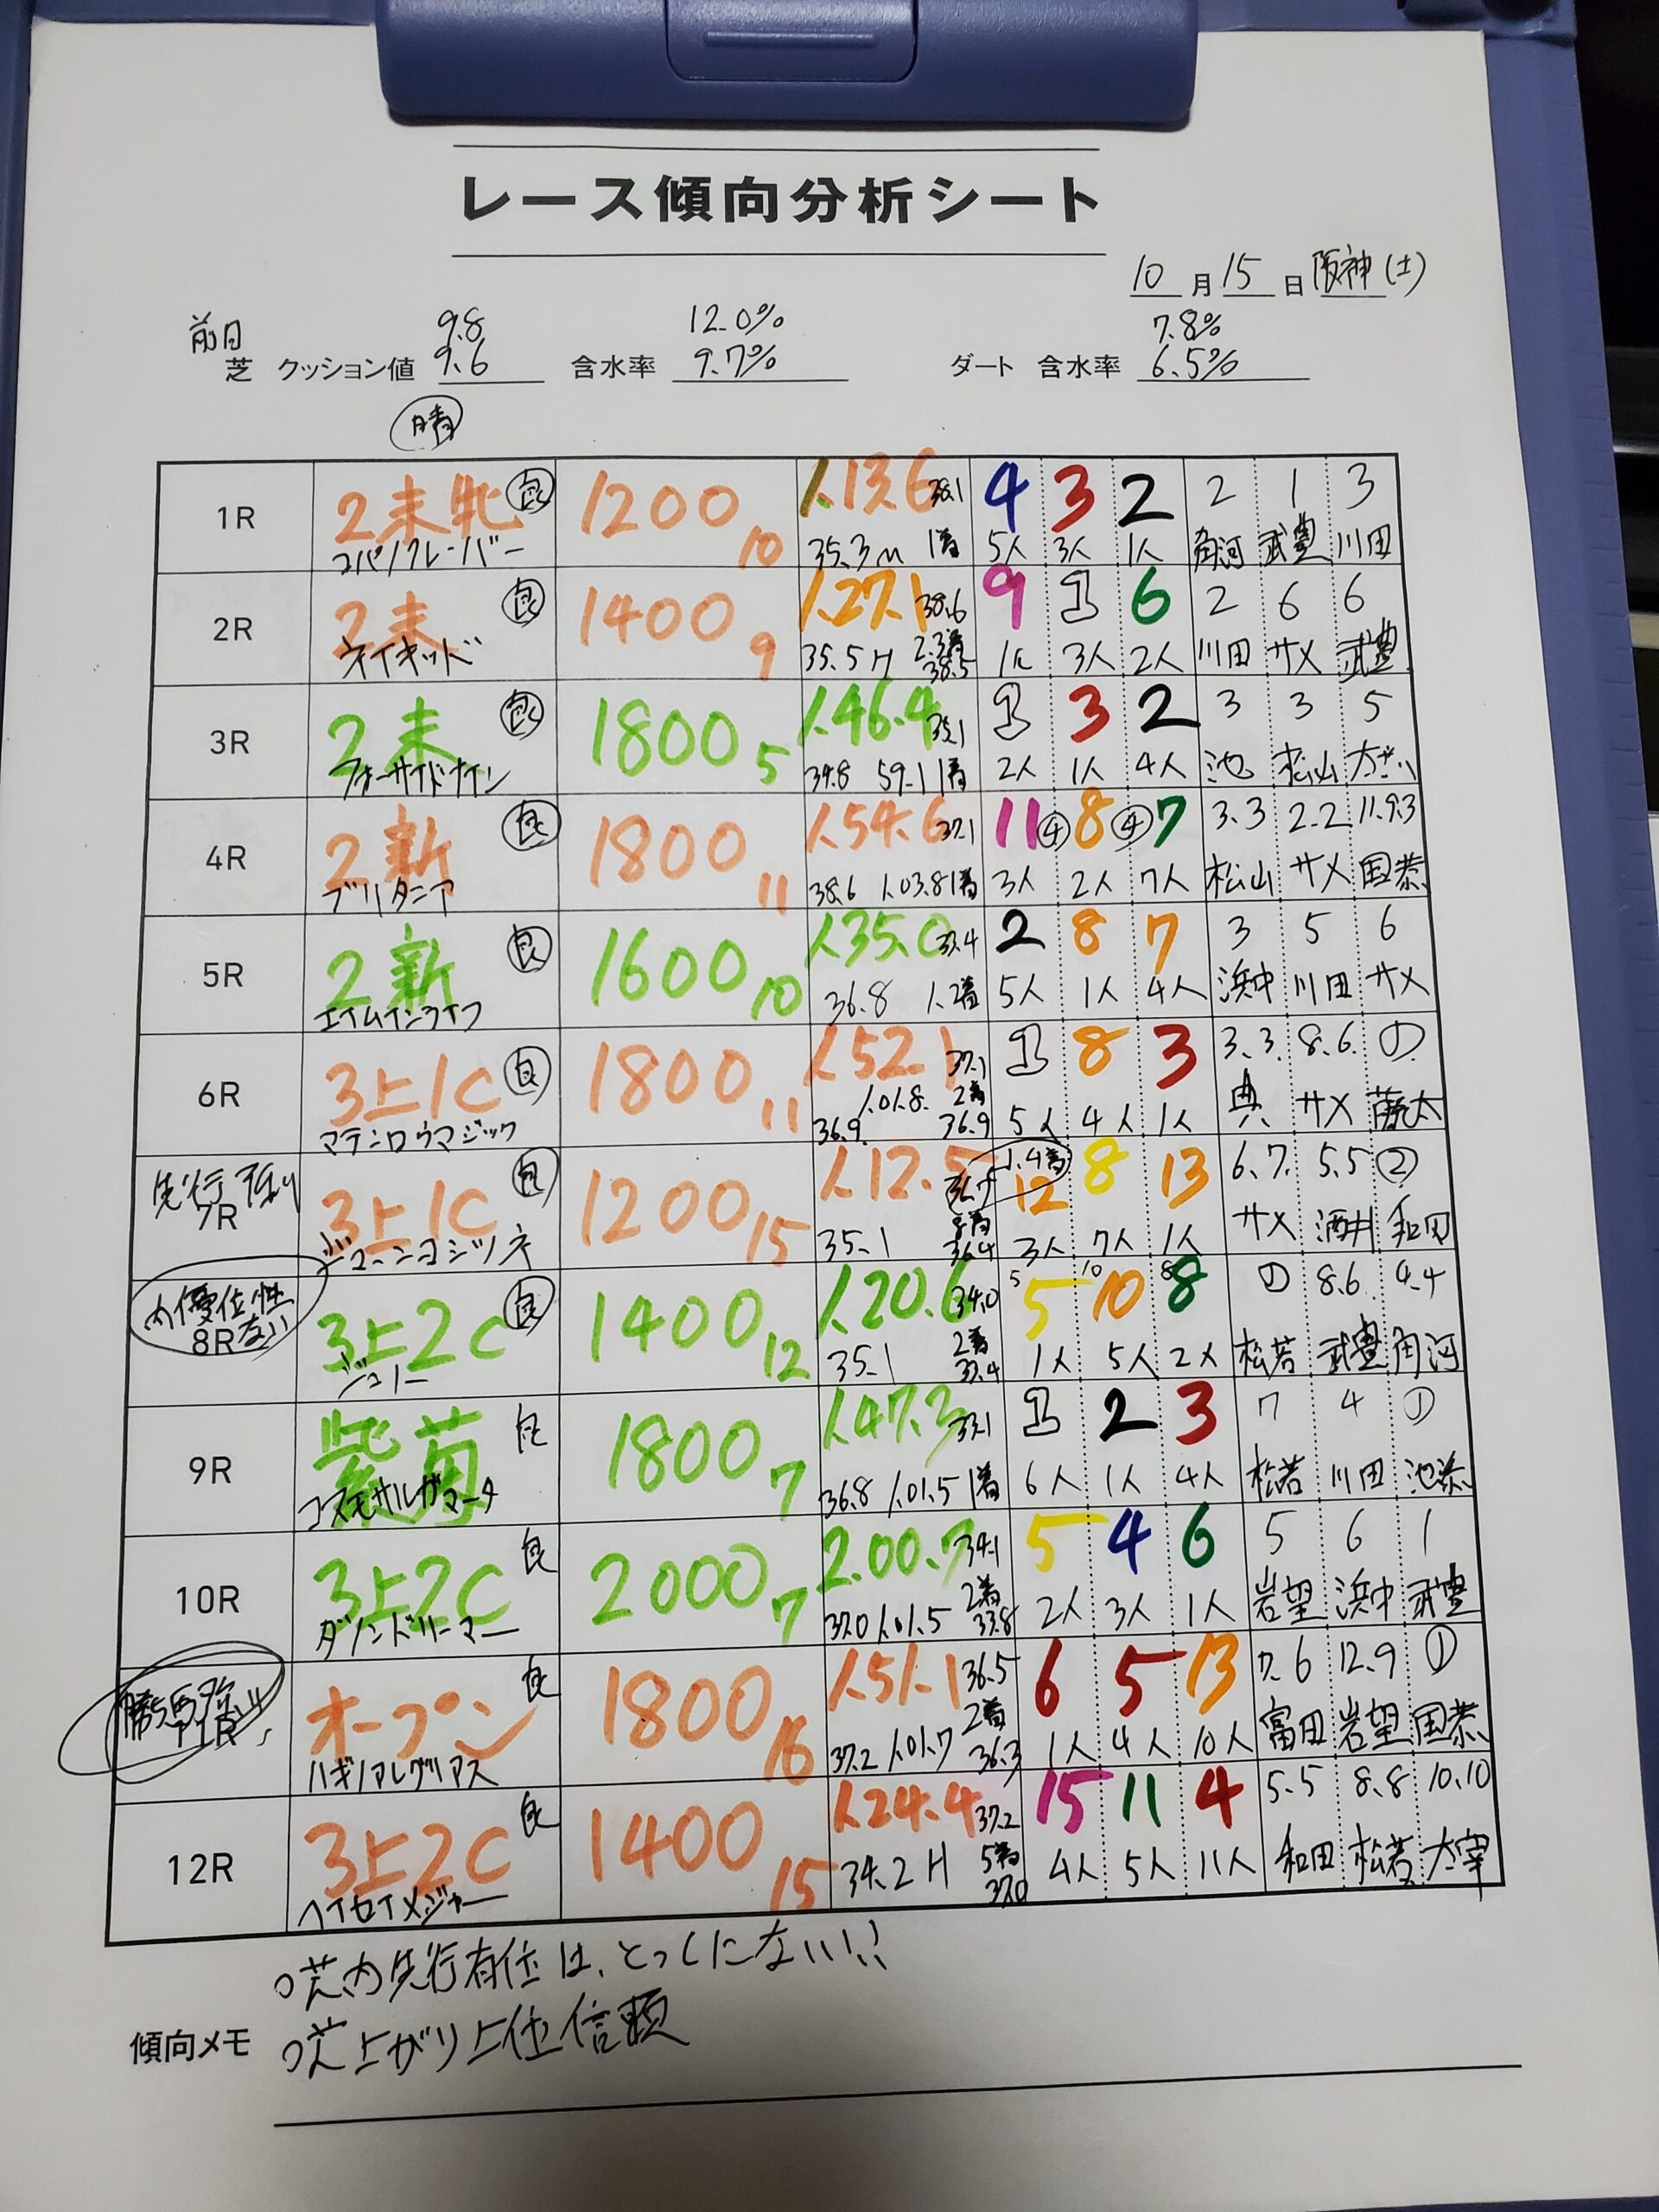 レース傾向分析シート
10月15日 阪神(土)
前日 9.8 12.0% 7.8%
芝 クッション値 9.6 含水率 9.7% ダート 含水率 6.5%
晴
1R 2未牝 良 1200 10 1.13.6 38.1 4 3 2 2 1 3
コパノクレーバー 35.3 M 1着 5人 3人 1人 角河 武豊 川田
2R 2未 良 1400 9 1.27.1 38.6 9 1 6 2 6 6
35.5 H 2.3着 38.5 1人 3人 2人 川田 サメ 武豊
3R 2未 良 1800 5 1.46.4 35.1 1 3 2 3 3 5
フォーサイドナイン 34.8 59.1 1着 2人 1人 4人 池 松山
4R 2新 良 1800 11 1.54.6 37.1 11 ④ 8 ④ 7 3.3 2.2 11.9.3
ブリタニア 38.6 1.03.8 1着 3人 2人 7人 松山 サメ 国恭
5R 2新 良 1600 10 1.35.0 33.4 2 8 7 3 5 6
エイムインライフ 36.8 1.2着 5人 1人 4人 浜中 川田 サメ
6R 3上1C 良 1800 11 1.52.1 37.1 1 8 3 3.3 8.6 ①
マテンロウマジック 36.9 1.01.8 2着 36.9 5人 4人 1人 典 サメ
先行有利
7R 3上1C 良 1200 15 1.12.5 1.4着 12 8 13 6.7 5.5 ②
ジューンヨシツネ 35.1 8着 36.4 3人 7人 1人 サメ 酒井 和田
内優位性ない
8R 3上2C 良 1400 12 1.20.6 34.0 5 5 10 10 8 8 ① 8.6 4.4
ジュリー 35.1 2着 33.4 1人 5人 2人 松若 武豊 角河
9R 紫菊 良 1800 7 1.47.3 33.1 1 2 3 7 4 ①
コスモサガルマータ 36.8 1.01.5 1着 6人 1人 4人 松若 川田 池添
10R 3上2C 良 2000 7 2.00.7 34.1 5 4 6 5 6 1
ダノンドリーマー 37.0 1.01.5 2着 33.8 2人 3人 1人 岩望 浜中 武豊
勝ち馬強い
11R オープン 良 1800 16 1.51.1 36.5 6 5 13 7.6 12.9 ①
ハギノアレグリアス 37.2 1.01.7 2着 36.3 1人 4人 10人 富田 岩望 国恭
12R 3上2C 良 1400 15 1.24.4 37.2 15 11 4 5.5 8.8 10.10
ヘイセイメジャー 34.2 H 5着 37.0 4人 5人 11人 和田 松若 太宰
○芝内先行有位は、とっくにない!!
傾向メモ ○芝上がり上位信頼